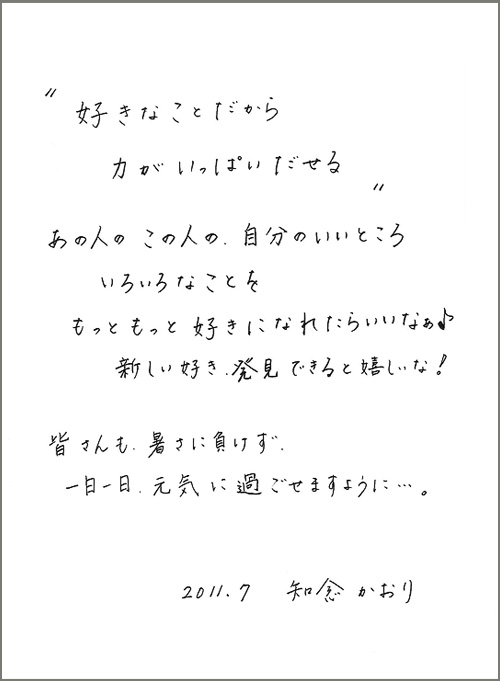 〃好きなことだから
力がいっぱいだせる〃
あの人の この人の、自分のいいところ
いろいろなことを
もっともっと 好きになれたらいいなぁ♪
新しい好き、発見できると嬉しいな！
皆さんも、暑さに負けず、
一日一日、元気に過ごせますように…。
2011.7 知念かおり